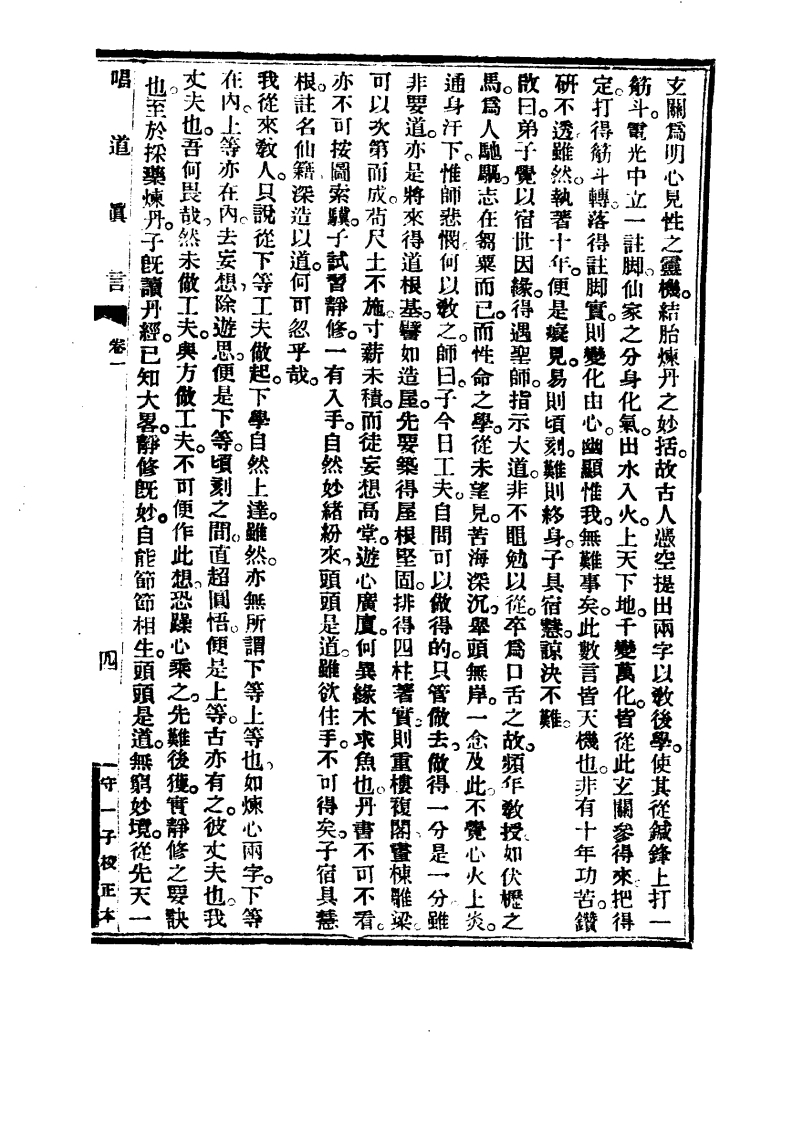 玄關爲明心見性之靈機。結胎煉丹之妙括。故古人憑空提出兩字以敎後學。使其從鍼鋒上打一
筋斗。電光中立一註脚。仙家之分身化氣。出水入火。上天下地。千變萬化。皆從此玄關參得來。把得
定。打得筋斗轉。落得註脚實。則變化由心。幽顯惟我。無難事矣。此數言皆天機也。非有十年功苦。鑽
硏不透。雖然。執著十年。便是癡見。易則頃刻。難則終身。子具宿慧。諒決不難。
啟曰。弟子覺以宿世因緣。得遇聖師。指示大道。非不黽勉以從。卒爲口舌之故。頻年敎授。如伏櫪之
馬。爲人馳驅。志在芻粟而已。而性命之學。從未望見。苦海深沉。舉頭無岸。一念及此。不覺心火上炎。
通身汗下。惟師悲憫。何以敎之。師曰。子今日工夫。自問可以做得的。只管做去。做得一分是一分。雖
非要道。亦是將來得道根基。譬如造屋。先要築得屋根堅固。排得四柱著實。則重樓複閣。畫棟雕梁。
可以次第而成。若尺土不施。寸薪未積。而徒妄想高堂。遊心廣廈。何異緣木求魚也。丹書不可不看。
亦不可按圖索驥。子試習靜修。一有入手。自然妙緒紛來。頭頭是道。雖欲住手。不可得矣。子宿具慧
根。註名仙籍。深造以道。何可忽乎哉。
我從來敎人。只說從下等工夫做起。下學自然上達。雖然。亦無所謂下等上等也。如煉心兩字。下等
在內。上等亦在內。去妄想。除遊思。便是下等。頃刻之間。直超圓悟。便是上等。古亦有之。彼丈夫也。我
丈夫也。吾何畏哉。然未做工夫。與方做工夫。不可便作此想。恐躁心乘之。先難後獲。實靜修之要訣
也。至於採藥煉丹。子旣讀丹經。已知大畧。靜修旣妙。自能節節相生。頭頭是道。無窮妙境。從先天一
唱道眞言 卷一 四 守一子校正本